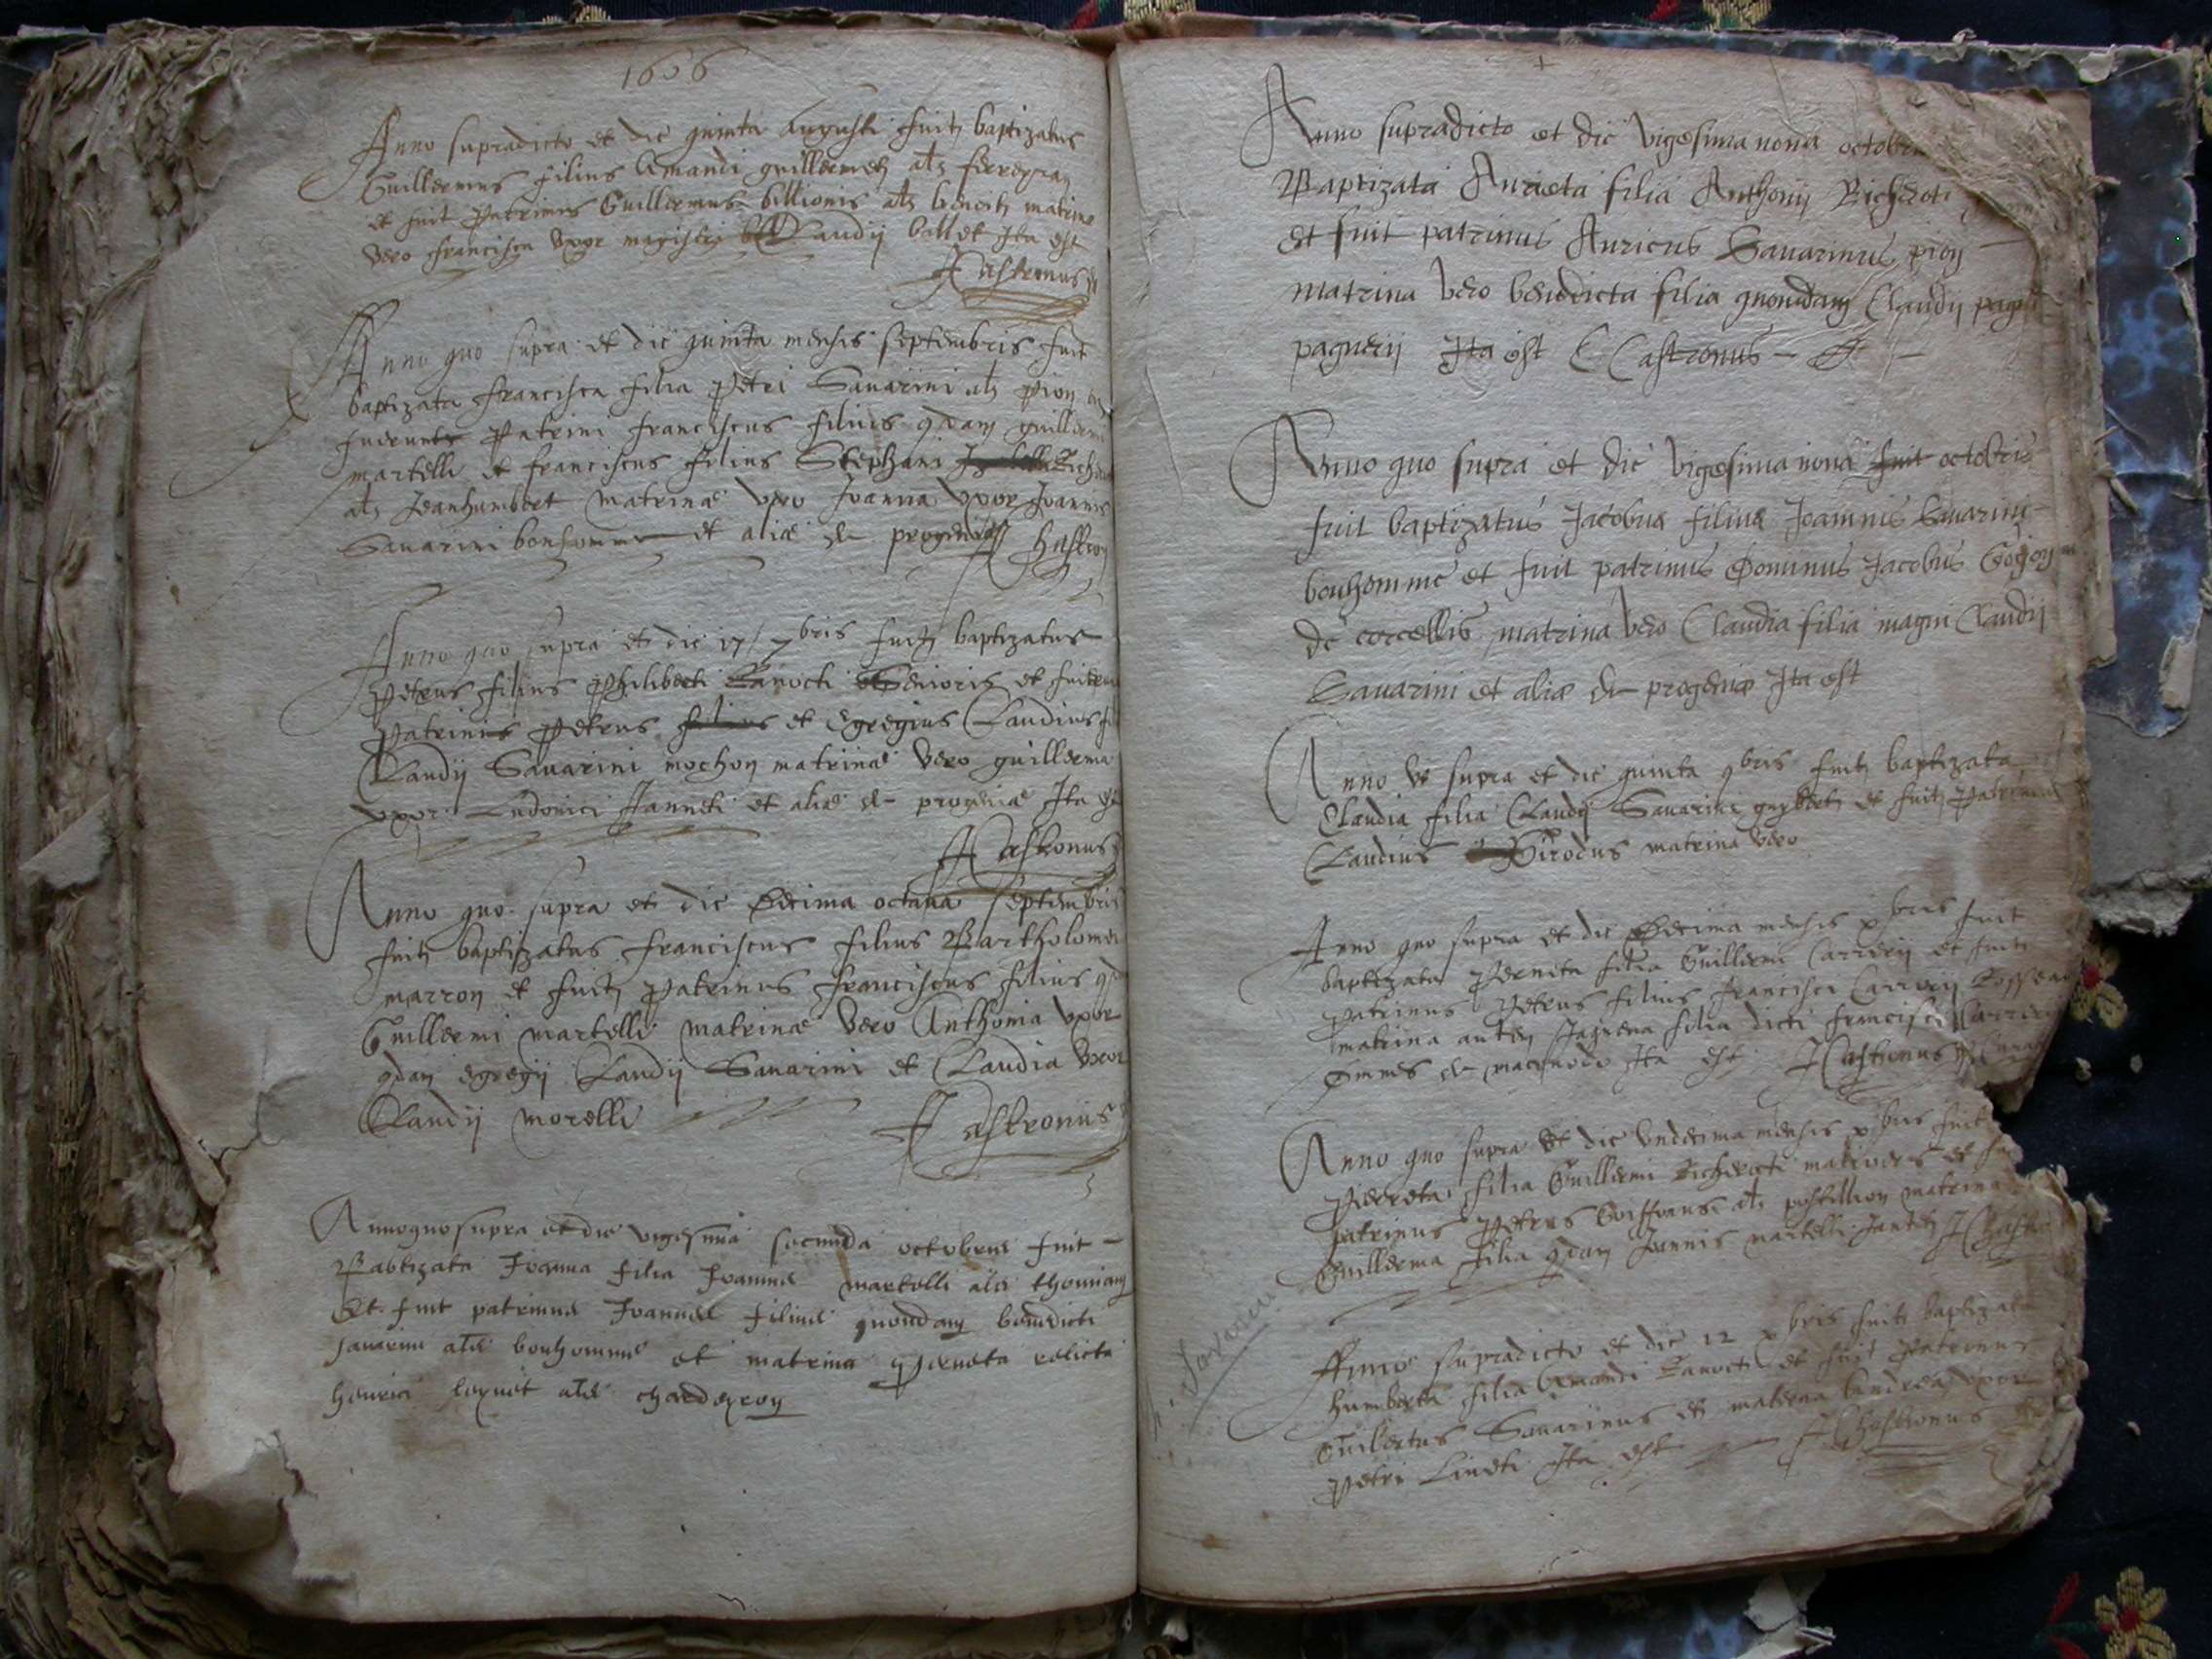 1606
Anno supradicto et die quinta Augusti fuit baptizatus
Guillermus filius Amandi guillermetz als
et fuit patrinus Guillermus billionis als benoit matrina
vero francisca uxor magistri Claudij ballet Ita est
Castronus
Anno quo supra et die quinta mensis septembris fuit
baptizata francisca filia Petri Savarini als pion et
fuerunt patrini franciscus filius qdam guillermi
martelli et franciscus filius Stephani
als Jeanhumbert matrinae vero Joanna uxor Joannis
Savarini bonhomme et aliae de progenie
Anno quo supra et die 17 7bris fuit baptizatus
Petrus filius Philiberti Ranoti Senioris et fuerunt
patrinis Petrus filius et Egregius Claudius
Claudij Savarini mochon matrinae vero guillerma
uxor Ludovici Janneti et aliae de progenie Ita est
Castronus
Anno quo supra et die Decima octava septembris
fuit baptizatus franciscus filius Bartholomei
marron et fuit Patrinus franciscus filius qdam
Guillermi martelli matrinae vero Anthonia uxor
qdam egregij Claudij Savarini et Claudia uxor
Claudij morelli
Castronus
Anno quo supra et die vigesima secunda octobris fuit
Babtizata Joanna filia Joannis martelli als thomiam
Et fuit patrinus Joannes filius quondam benedicti
savarini als bonhomme et matrina Perneta relicta
henrici als
Anno supradicto et die vigesima nona octobris
Baptizata Aurieta filia Anthonij Richeroti
et fuit patrinus Auricus Savarinus pion
matrina vero benedicta filia quondam Claudij
paguerij Ita est Castronus
Anno quo supra et die vigesima nona fuit octobris
fuit baptizatus Jacobus filius Joannis Savarini
bonhomme et fuit patrinus Dominus Jacobus
de corcellis matrina vero Claudia filia magni Claudij
Savarini et aliae de progenie Ita est
Anno ut supra et die quinta 9bris fuit baptizata
Claudia filia Claudij Savarini guybert et fuit Patrinus
Claudius matrina vero
Anno quo supra et die Decima mensis xbris fuit
baptizata Perneta filia Guillermi Carrerij et fuit
patrinus Petrus filius francisci Carrerij
matrina autem Jaquema filia dicti francisci Carrerij
omnes de Ita est Castronus
Anno quo supra Et die undecima mensis xbris fuit
Pierreta filia Guillermi Richeroti et
patrinus Petrus als postillion matrina
Guillerma filia qdam Joannis martelli
Savarin
Anno supradicto et die 12 xbris fuit baptizata
humberta filia Amandi Ranoti et fuit Patrinus
Guibertus Savarinus et matrina Andrea uxor
Petri Lineti Ita est Chastronus